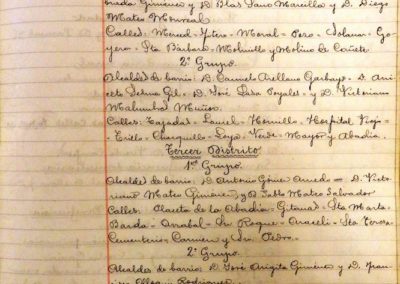 nada Giménez y D. Blas Sanz Marcilla y D. Diego
Mateo Monreal
Calles: Merced - Ytero - Moral - Pozo - Solana - Go-
yero - Sta Bárbara - Molinillo y Molino de Cañete.
2º Grupo.
Alcaldes de barrio: D. Carmelo Arellano Garbayo - D. Ani-
ceto Gil - D. José Lasa Poyales - y D. Victoriano
Malumbres Muñoz.
Calles: Tajadas - Laurel - Hornillo - Hospital Viejo -
Trillo - Changuillo - Verde - Mayor y Abadia.
Tercer Distrito
1er Grupo.
Alcaldes de barrio: D. Antonio Arnedo - D. Victo-
riano Mateo Giménez, y D. Pablo Mateo Salvador
Calles: Placeta de la Abadia - Gitanos - Sta Marta -
Barda - Arrabal - Sn Roque - Araceli - Sta Teresa
Cementerio - Carmen y Sn Pedro.
2º Grupo.
Alcaldes de barrio: D. José Giménez y D. Fran-
Rodriguez